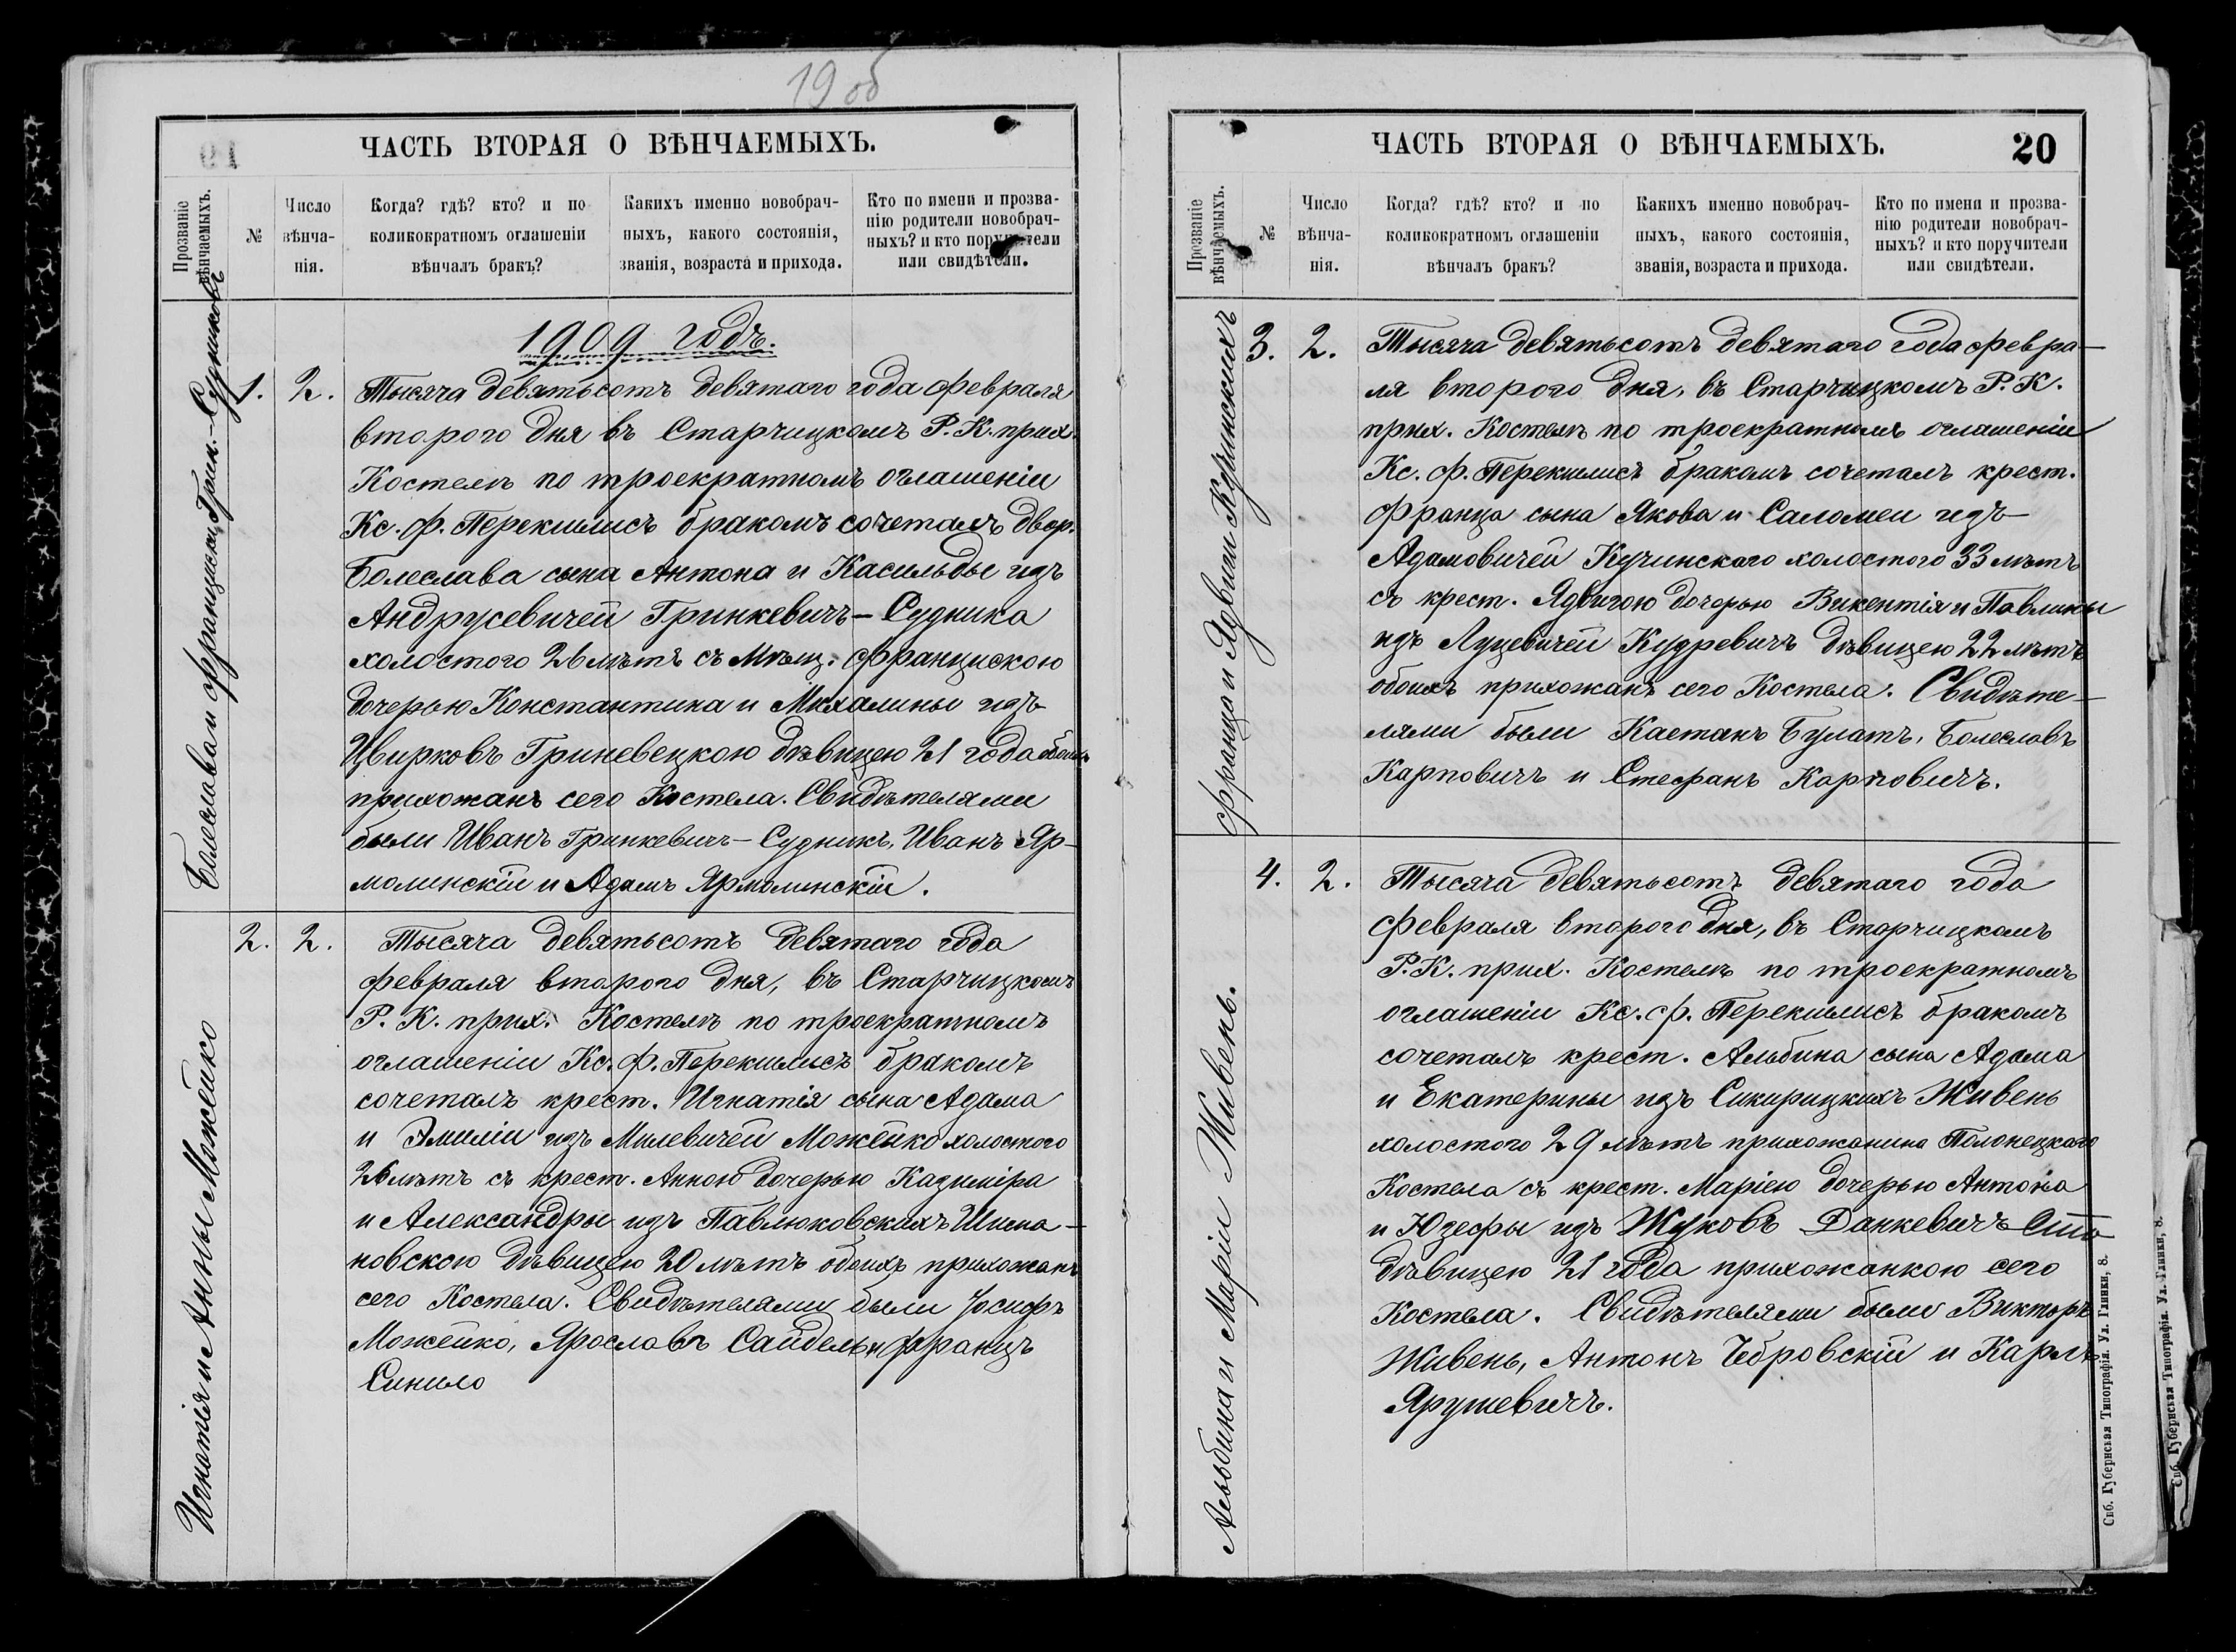 19 об
ЧАСТЬ ВТОРАЯ О ВѢНЧАЕМЫХЪ.
Прозваніе вѣнчаемыхъ.
№
Число вѣнча-нія.
Когда? гдѣ? кто? и по
коликократномъ оглашеніи
вѣнчалъ бракъ?
Какихъ именно новобрач-
ныхъ, какого состоянія,
званія, возраста и прихода.
Кто по имени и прозва-
нію родители новобрач-
ныхъ? и кто поручители
или свидѣтели.
1909 годъ.
Болеслава и Франциски Грин.-Судниковъ
1. 2. Тысяча девятьсотъ девятаго года февраля
второго дня въ Старчицкомъ Р. К. прих.
Костелѣ по троекратномъ оглашеніи
Кс. Ф. Перекшлисъ бракомъ сочеталъ двор.
Болеслава сына Антона и Касильды изъ
Андрусевичей Гринкевичъ-Судника
холостого 26 лѣтъ съ мѣщ. Францискою
дочерью Константина и Михалины изъ
Цвирковъ Гриневецкою дѣвицею 21 года обоихъ
прихожанъ сего Костела. Свидѣтелями
были Иванъ Гринкевичъ-Судникъ, Иванъ Яр-
молинскій и Адамъ Ярмолинскій.
Игнатія и Анны Можейко
2. 2. Тысяча девятьсотъ девятаго года
февраля второго дня, въ Старчицкомъ
Р. К. прих. Костелѣ по троекратномъ
оглашеніи Кс. Ф. Перекшлисъ бракомъ
сочеталъ крест. Игнатія сына Адама
и Эмиліи изъ Милевичей Можейко холостого
26 лѣтъ съ крест. Анною дочерью Казиміра
и Александры изъ Павлюковскихъ Шима-
новскою дѣвицею 20 лѣтъ обоихъ прихожанъ
сего Костела. Свидѣтелями были Іосифъ
Можейко, Ярославъ Сайдель и Францъ
Синило
ЧАСТЬ ВТОРАЯ О ВѢНЧАЕМЫХЪ.
20
Прозваніе вѣнчаемыхъ.
№
Число вѣнча-нія.
Когда? гдѣ? кто? и по
коликократномъ оглашеніи
вѣнчалъ бракъ?
Какихъ именно новобрач-
ныхъ, какого состоянія,
званія, возраста и прихода.
Кто по имени и прозва-
нію родители новобрач-
ныхъ? и кто поручители
или свидѣтели.
Франца и Ядвиги Кучинскихъ
3. 2. Тысяча девятьсотъ девятаго года февра-
ля второго дня, въ Старчицкомъ Р. К.
прих. Костелѣ по троекратномъ оглашеніи
Кс. Ф. Перекшлисъ бракомъ сочеталъ крест.
Франца сына Якова и Саломеи изъ
Адамовичей Кучинского холостого 33 лѣтъ
съ крест. Ядвигою дочерью Викентія и Павлины
изъ Луцевичей Кудревичъ дѣвицею 22 лѣтъ
обоихъ прихожанъ сего Костела. Свидѣте-
лями были Каетанъ Булатъ, Болеславъ
Карповичъ и Стефанъ Карповичъ.
Альбина и Маріи Живень.
4. 2. Тысяча девятьсотъ девятаго года
февраля второго дня, въ Старчицкомъ
Р. К. прих. Костелѣ по троекратномъ
оглашеніи Кс. Ф. Перекшлисъ бракомъ
сочеталъ крест. Альбина сына Адама
и Екатерины изъ Сикирицкихъ Живень
холостого 29 лѣтъ прихожанина Полонецкаго
Костела съ крест. Маріею дочерью Антона
и Юзефы изъ Жуковъ Данкевичъ
дѣвицею 21 года прихожанкою сего
Костела. Свидѣтелями были Викторъ
Живень, Антонъ Чебровскій и Карлъ
Ярушевичъ.
Спб. Губернская Типографія. Ул. Глинки, 8.
Спб. Губернская Типографія. Ул. Глинки, 8.